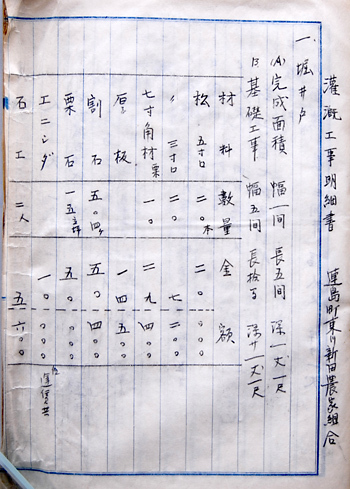 灌漑工事明細書 連島町東川新田農家組合
一、堀井戸
(A)完成面積 幅一間 長五間 深一丈一尺
B 基礎工事 幅五間 長拾間 深廿一丈一尺
材料 数量 金額
松 五寸口 二〇本 二〇〇〇
〃 三寸口 七二〇
七寸角材栗 一〇 二九四
板 一四五〇
割石 五〇四 五〇四〇
栗石 一五 五〇〇〇
エニシダ 一〇〇〇
石工 二人 五六〇〇
運賃共